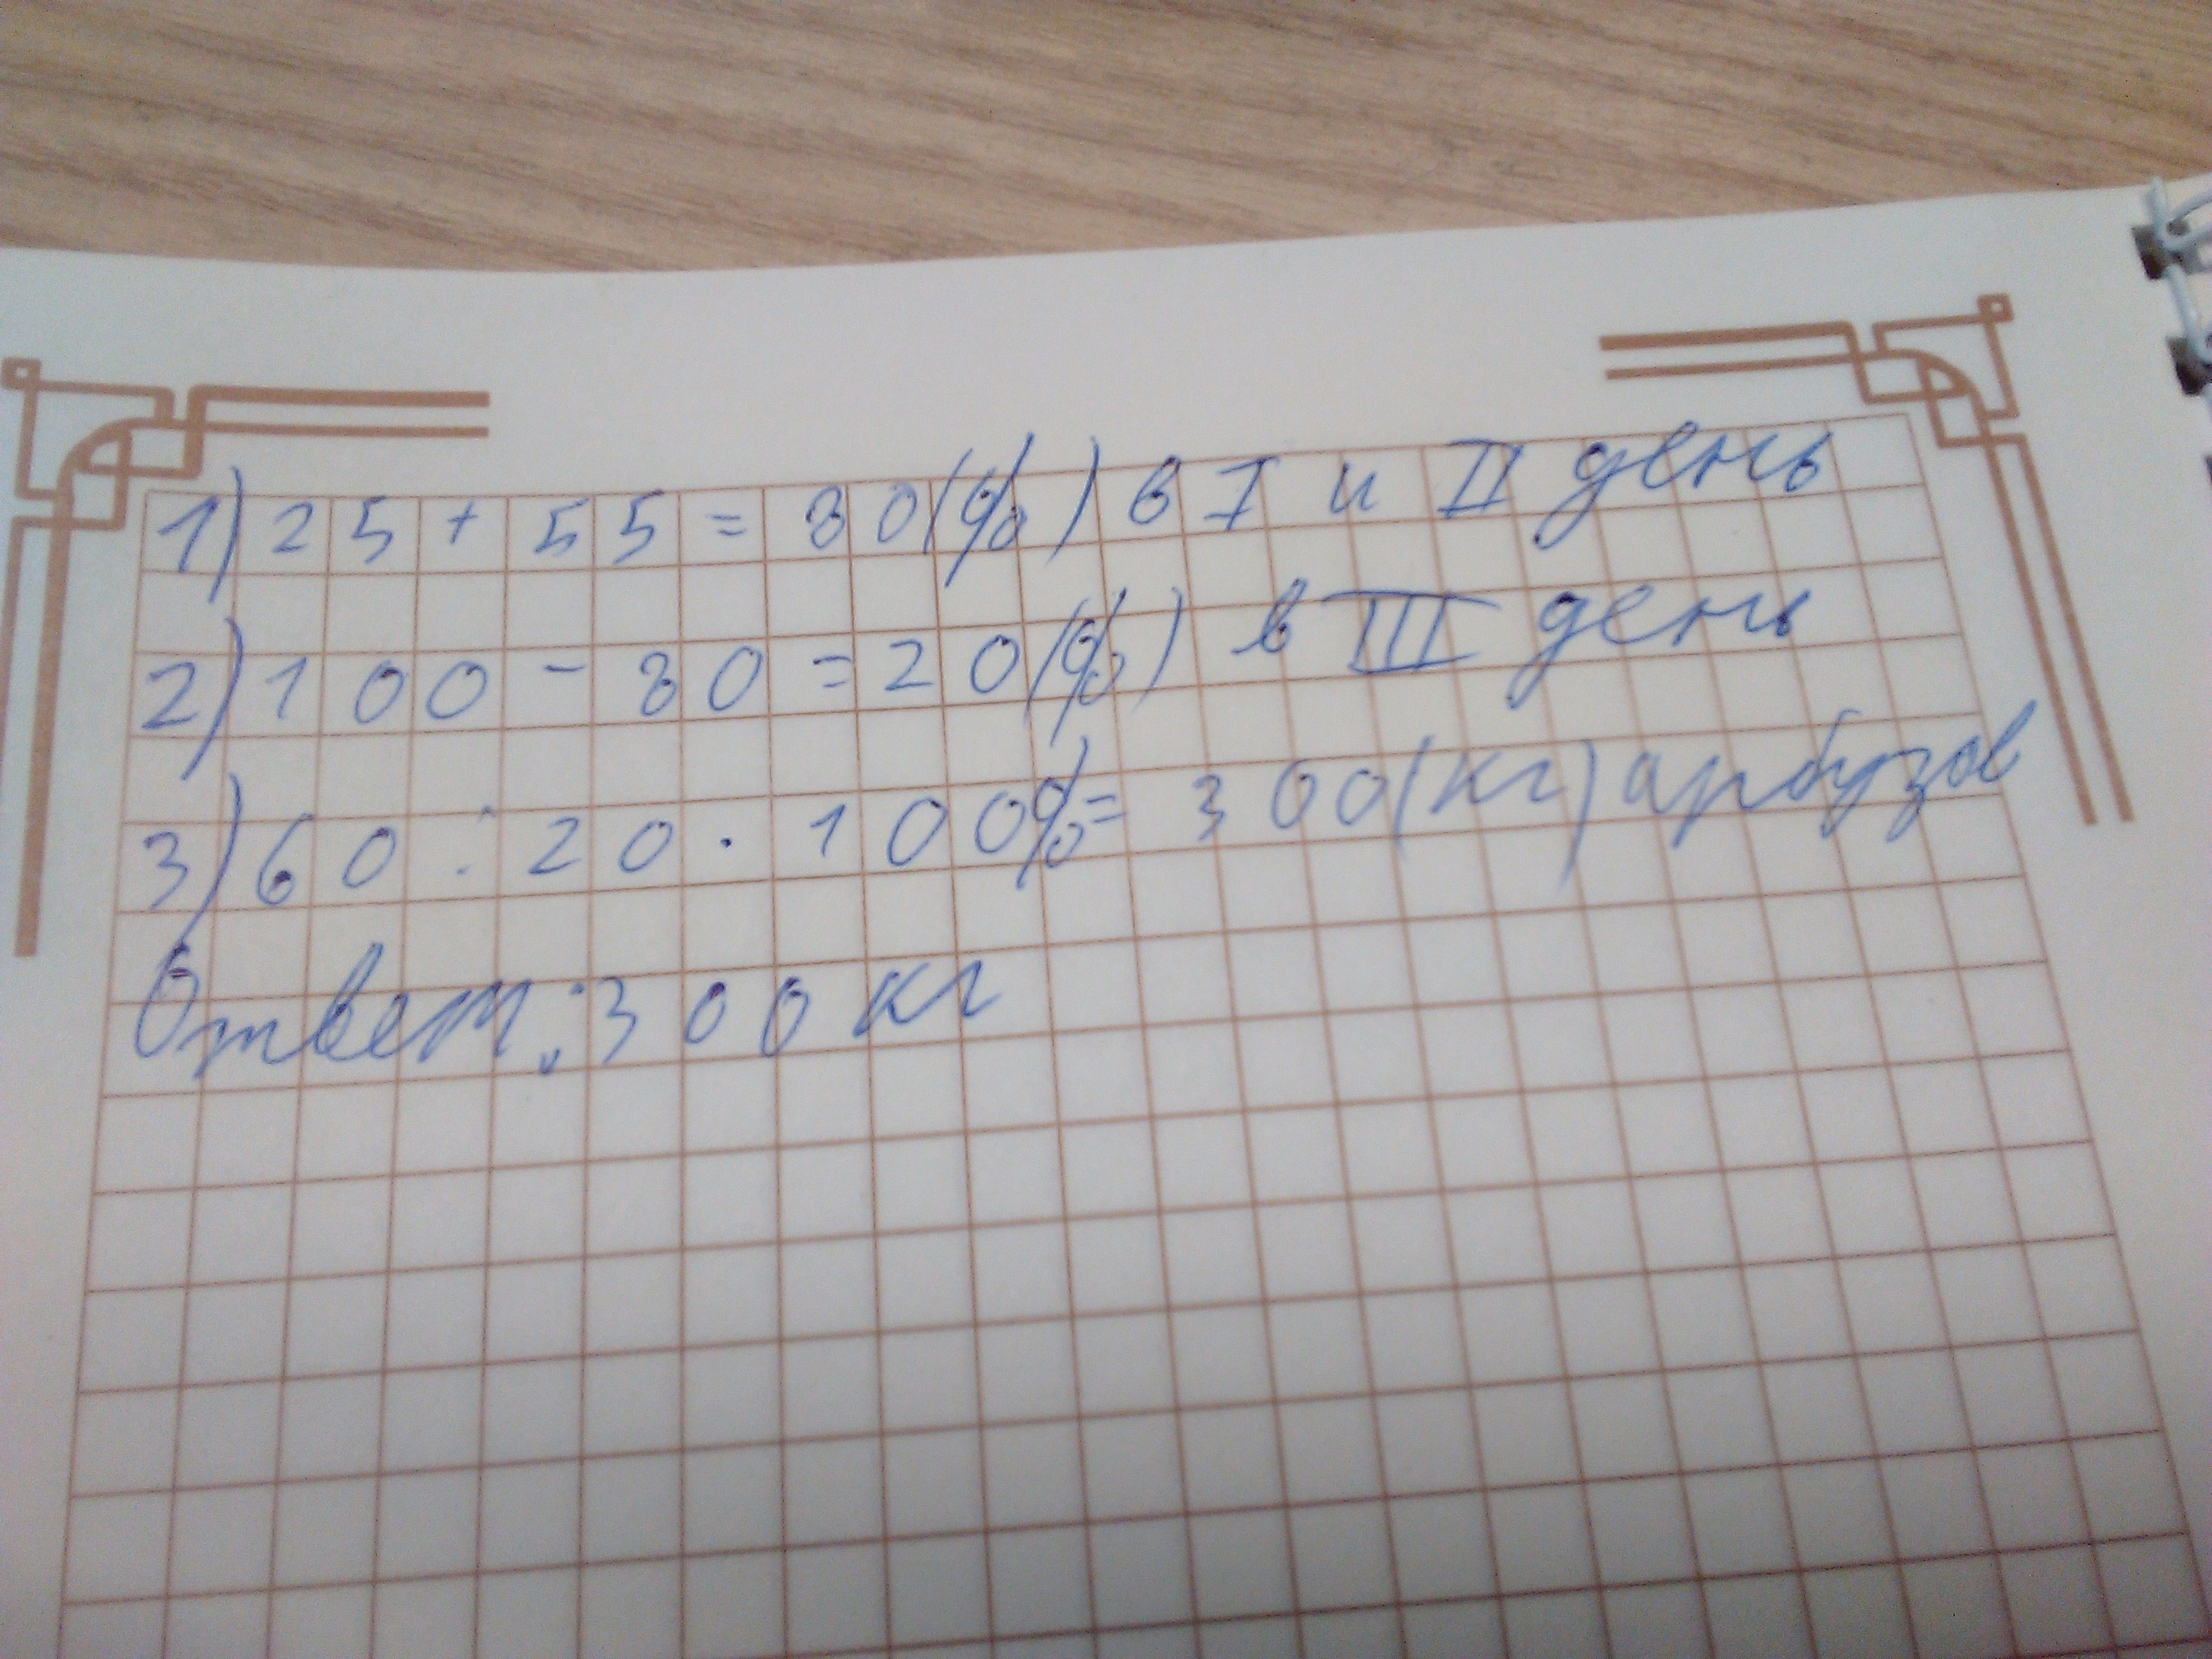 1) 25 + 55 = 80(%) в I и II день
2) 100 - 80 = 20(%) в III день
3) 60 : 20 · 100% = 300(кг) арбузов
Ответ: 300 кг